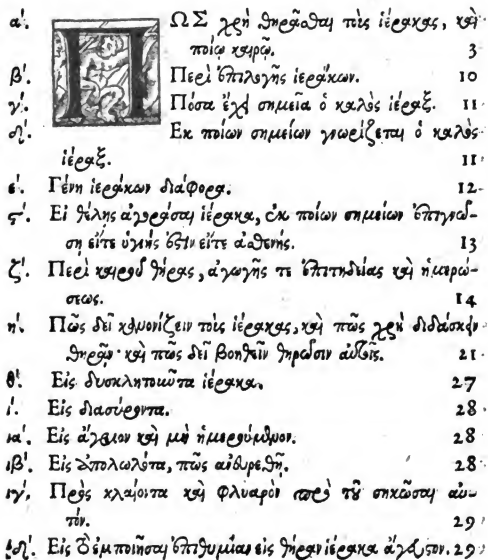 α΄. ΠΩΣ χρὴ θηρᾶσθαι τοὺς ἱέρακας, καὶ
ποίῳ καιρῷ. 3
β΄. Περὶ ἐπιλογῆς ἱεράκων. 10
γ΄. Πόσα ἔχει σημεῖα ὁ καλὸς ἱέραξ. 11
δ΄. Εκ ποίων σημείων γνωρίζεται ὁ καλὸς
ἱέραξ. 11
ε΄. Γένη ἱεράκων διάφορα. 12
ϛ΄. Εἰ θέλῃς ἀγοράσαι ἱέρακα, ἐκ ποίων σημείων ἐπιγνώ-
ση εἴτε ὑγιής ἐστιν εἴτε ἀσθενής. 13
ζ΄. Περὶ καιροῦ θήρας, ἀγωγῆς τε ἐπιτηδείας καὶ ἡμερώ-
σεως. 14
η΄. Πῶς δεῖ κανονίζειν τοὺς ἱέρακας, καὶ πῶς χρὴ διδάσκειν
θηρᾷν· καὶ πῶς δεῖ βοηθεῖν θηρῶσιν αὐτοῖς. 21
θ΄. Εἰς δυσκλητοιῶτα ἱέρακα. 27
ι΄. Εἰς διασύροντα. 28
ια΄. Εἰς ἄγριον καὶ μὴ ἡμερούμενον. 28
ιβ΄. Εἰς ἀπολωλότα, πῶς αὖ εὑρεθῇ. 28
ιγ΄. Πρὸς κλαίοντα καὶ φλυαρὸν πρὸ τοῦ σηκῶσαι αὐ-
τόν. 29
ιδ΄. Εἰς τὸ ἐμποιῆσαι ἐπιθυμίαν εἰς θήραν ἱέρακα ἄγαστον. 29